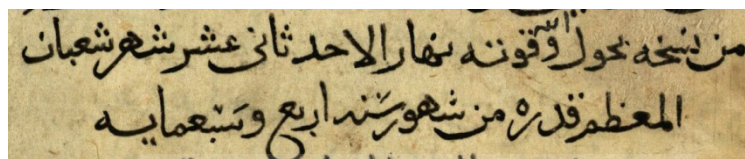 من نسخه بحول الله وقوته نهار الاحد ثانى عشر شهر شعبان
المعظم قدره من شهور سنه اربع وتسعمايه